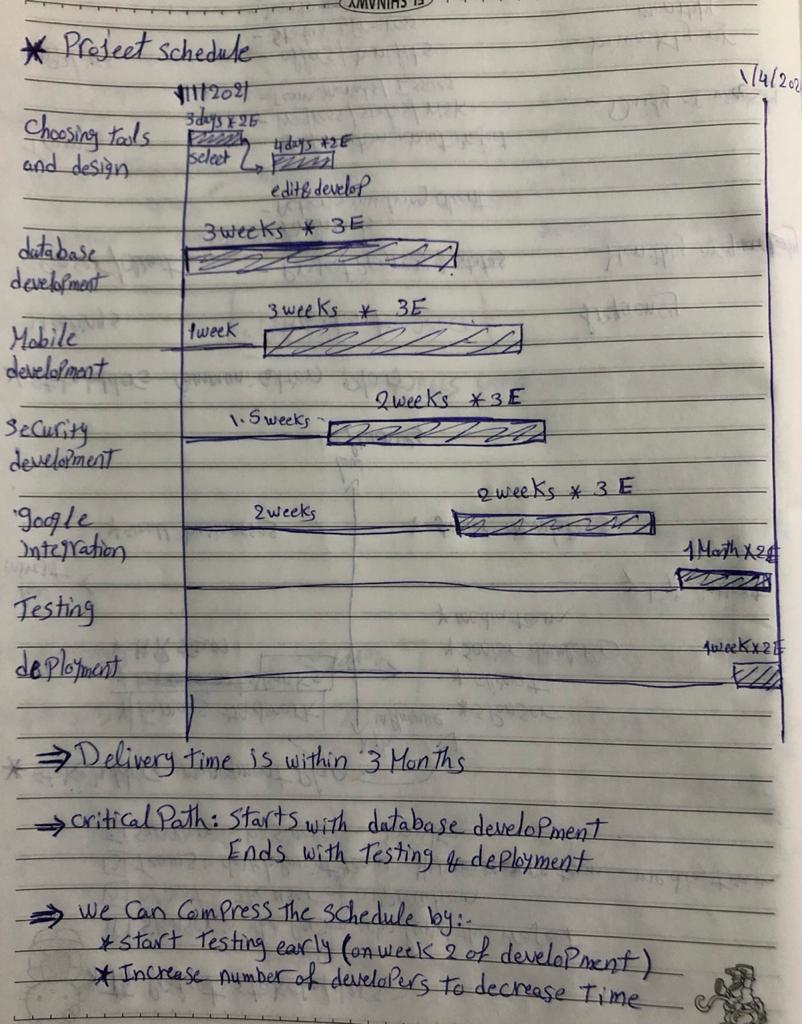 * Project schedule
1/1/2021
1/4/202
3days * 2E
Choosing tools
and design
select
4days * 2E
edit & develop
3weeks * 3E
database
development
3weeks * 3E
1week
Mobile
development
2weeks * 3E
1.5weeks
Security
development
2weeks * 3E
2weeks
google
integration
1 Month * 2E
Testing
1week * 2E
deployment
⇒ Delivery time is within 3 Months
⇒ critical Path: starts with database development
Ends with Testing & deployment
⇒ we can compress the schedule by:-
* start testing early (on week 2 of development)
* Increase number of developers to decrease time